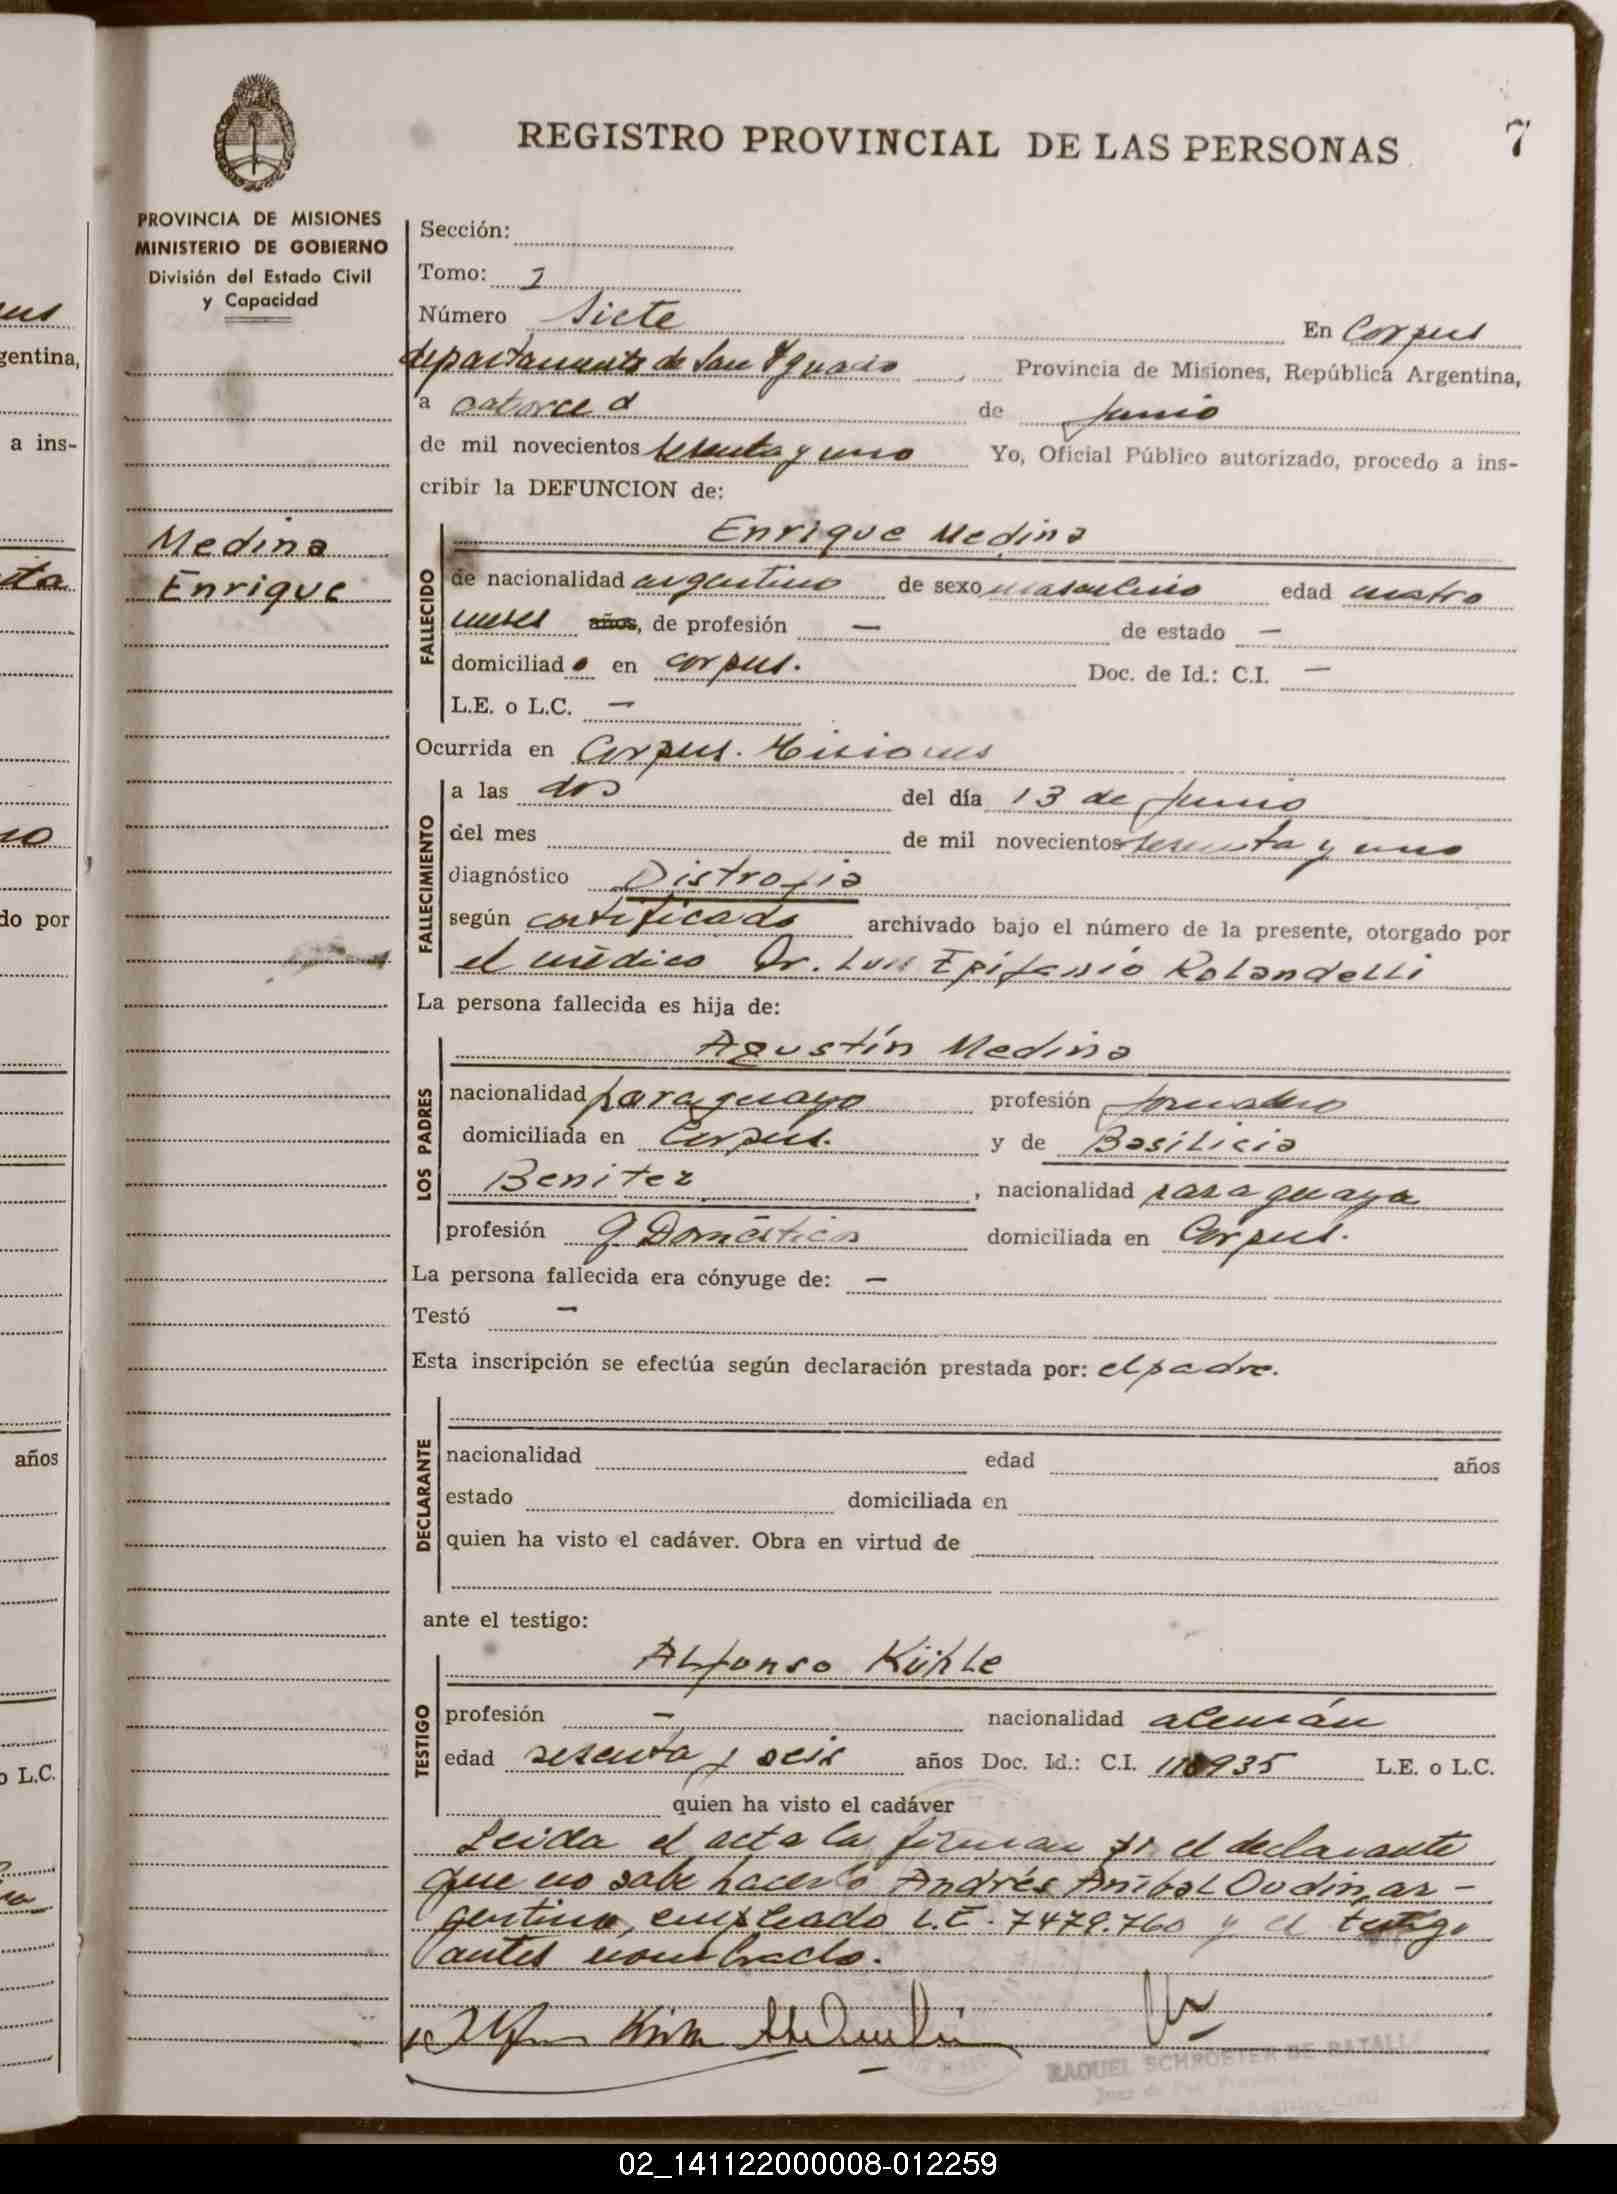 REGISTRO PROVINCIAL DE LAS PERSONAS
7
PROVINCIA DE MISIONES
MINISTERIO DE GOBIERNO
División del Estado Civil
y Capacidad
Medina
Enrique
Sección:
Tomo: 1
Número Siete En Corpus
departamento de San Ignacio Provincia de Misiones, República Argentina,
a catorce de Junio
de mil novecientos sesenta y uno Yo, Oficial Público autorizado, procedo a ins-
cribir la DEFUNCION de:
FALLECIDO
Enrique Medina
de nacionalidad argentino de sexo masculino edad cuatro
meses años, de profesión — de estado —
domiciliado en Corpus. Doc. de Id.: C.I. —
L.E. o L.C. —
Ocurrida en Corpus. Misiones
FALLECIMIENTO
a las dos del día 13 de Junio
del mes de mil novecientos sesenta y uno
diagnóstico Distrofia
según certificado archivado bajo el número de la presente, otorgado por
el médico Dr. Luis Epifanio Rolandelli
La persona fallecida es hija de:
LOS PADRES
Agustín Medina
nacionalidad paraguayo profesión jornalero
domiciliada en Corpus. y de Basilicia
Benitez, nacionalidad paraguaya
profesión Q Domésticos domiciliada en Corpus.
La persona fallecida era cónyuge de: —
Testó —
Esta inscripción se efectúa según declaración prestada por: el padre.
DECLARANTE
nacionalidad edad años
estado domiciliada en
quien ha visto el cadáver. Obra en virtud de
ante el testigo:
TESTIGO
Alfonso Kühle
profesión — nacionalidad alemán
edad sesenta y seis años Doc. Id.: C.I. 118935 L.E. o L.C.
quien ha visto el cadáver
Leida el acta la firman pr. el declarante
que no sabe hacerlo Andrés Aníbal Oudin, ar-
gentino, empleado L.E. 7479.760 y el testigo
antes nombrado.
RAQUEL SCHROSTER DE BATALL
02_141122000008-012259